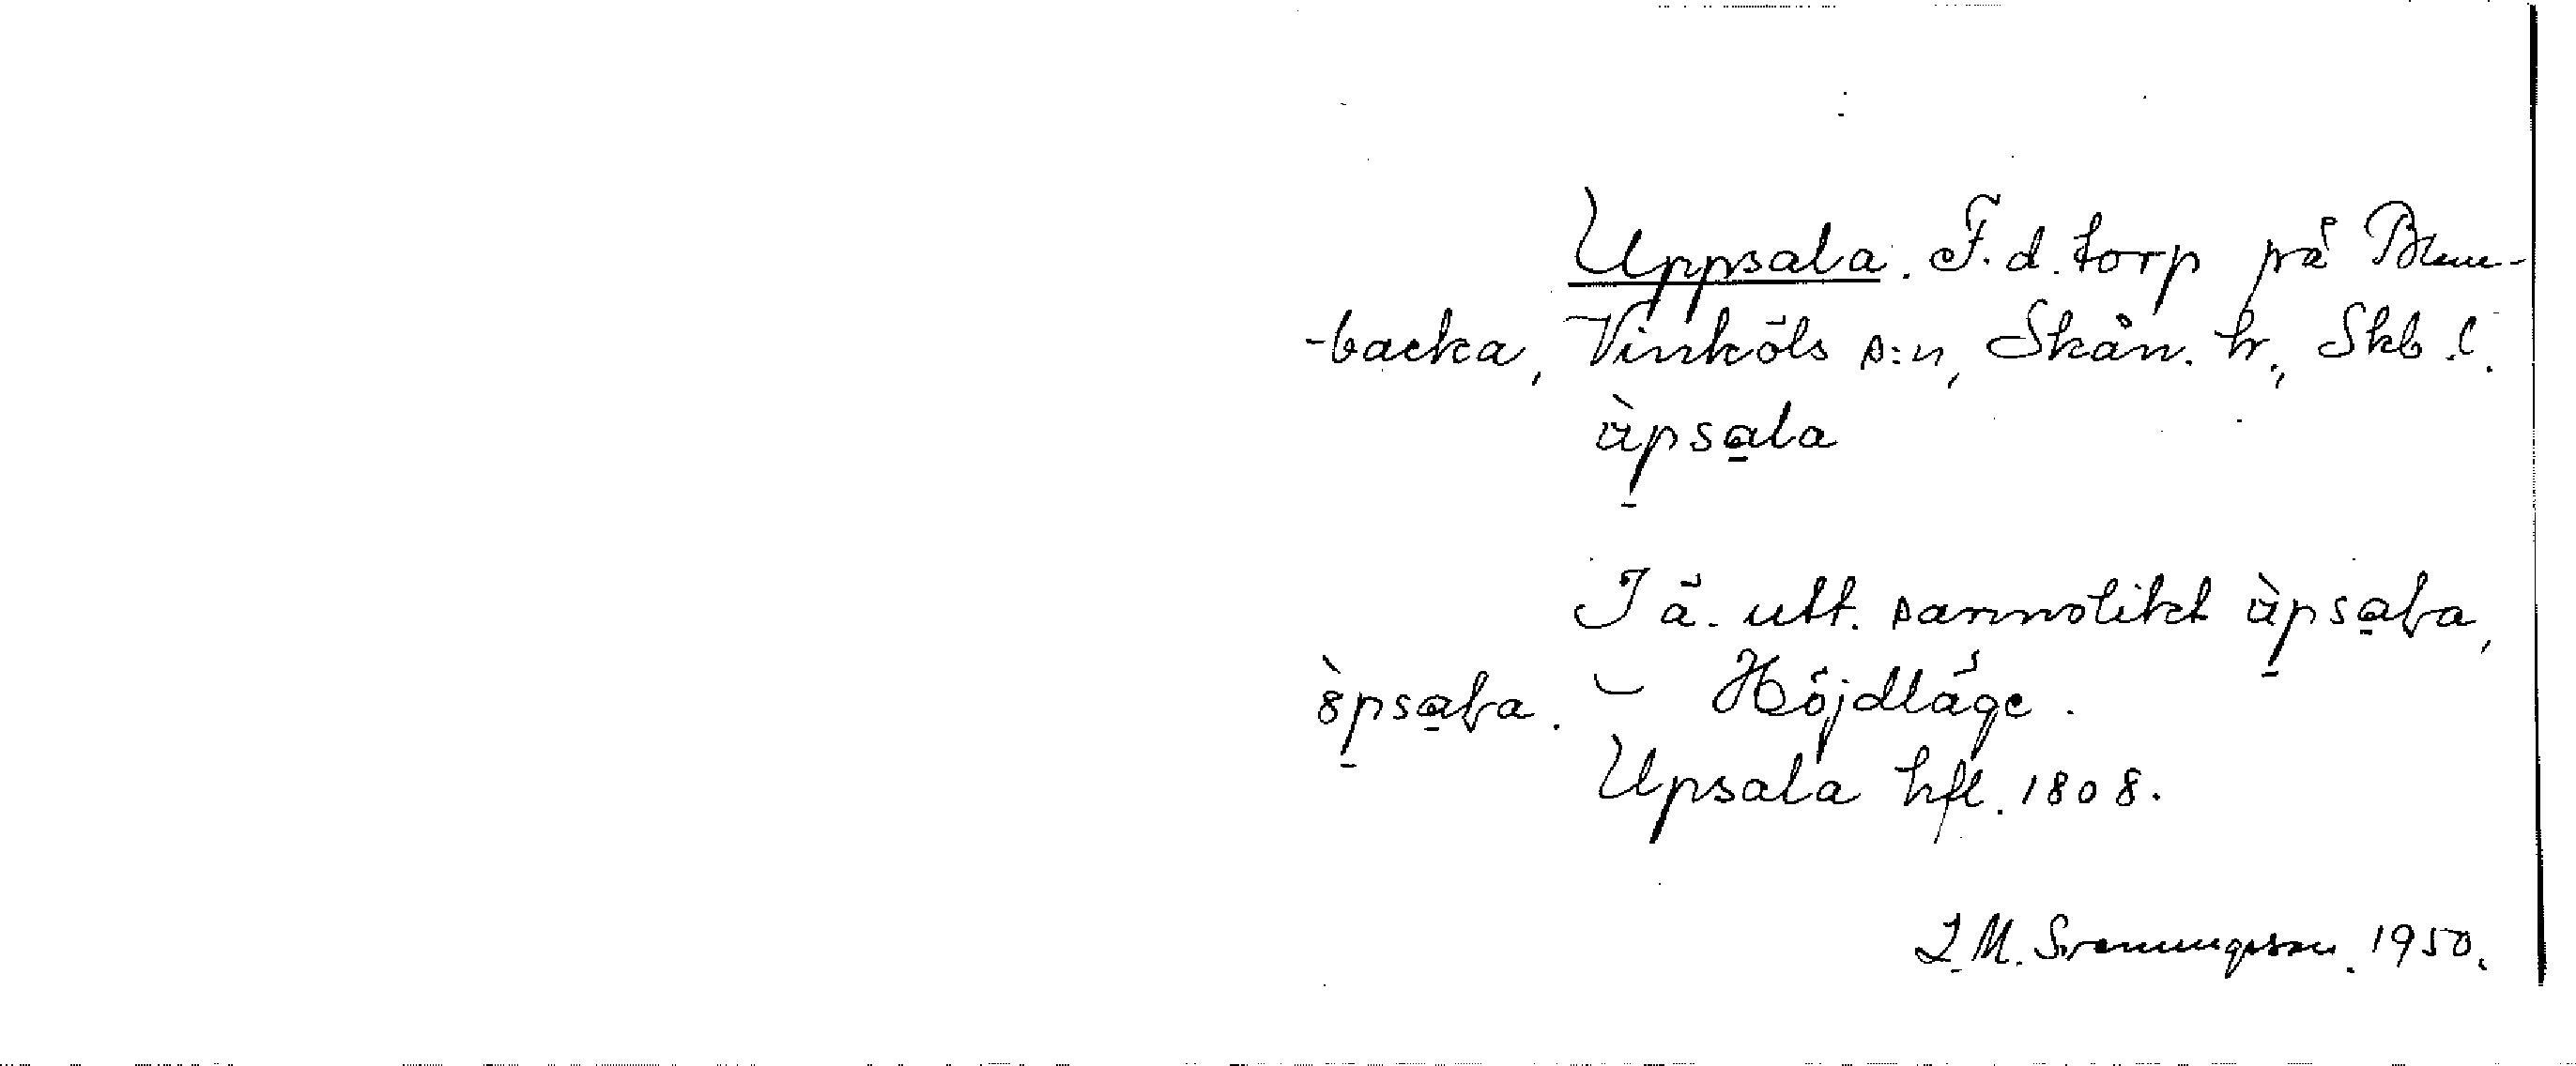 Uppsala. F. d. torp på Blem-
-backa, Vinköls s:n, Skån. hr., Skb. l.
àpsala
I ä. utt. sannolikt àpsaɫa,
òpsaɫa. – Höjdläge.
Upsala hfl. 1808.
I. M. Svenungsson. 1950.